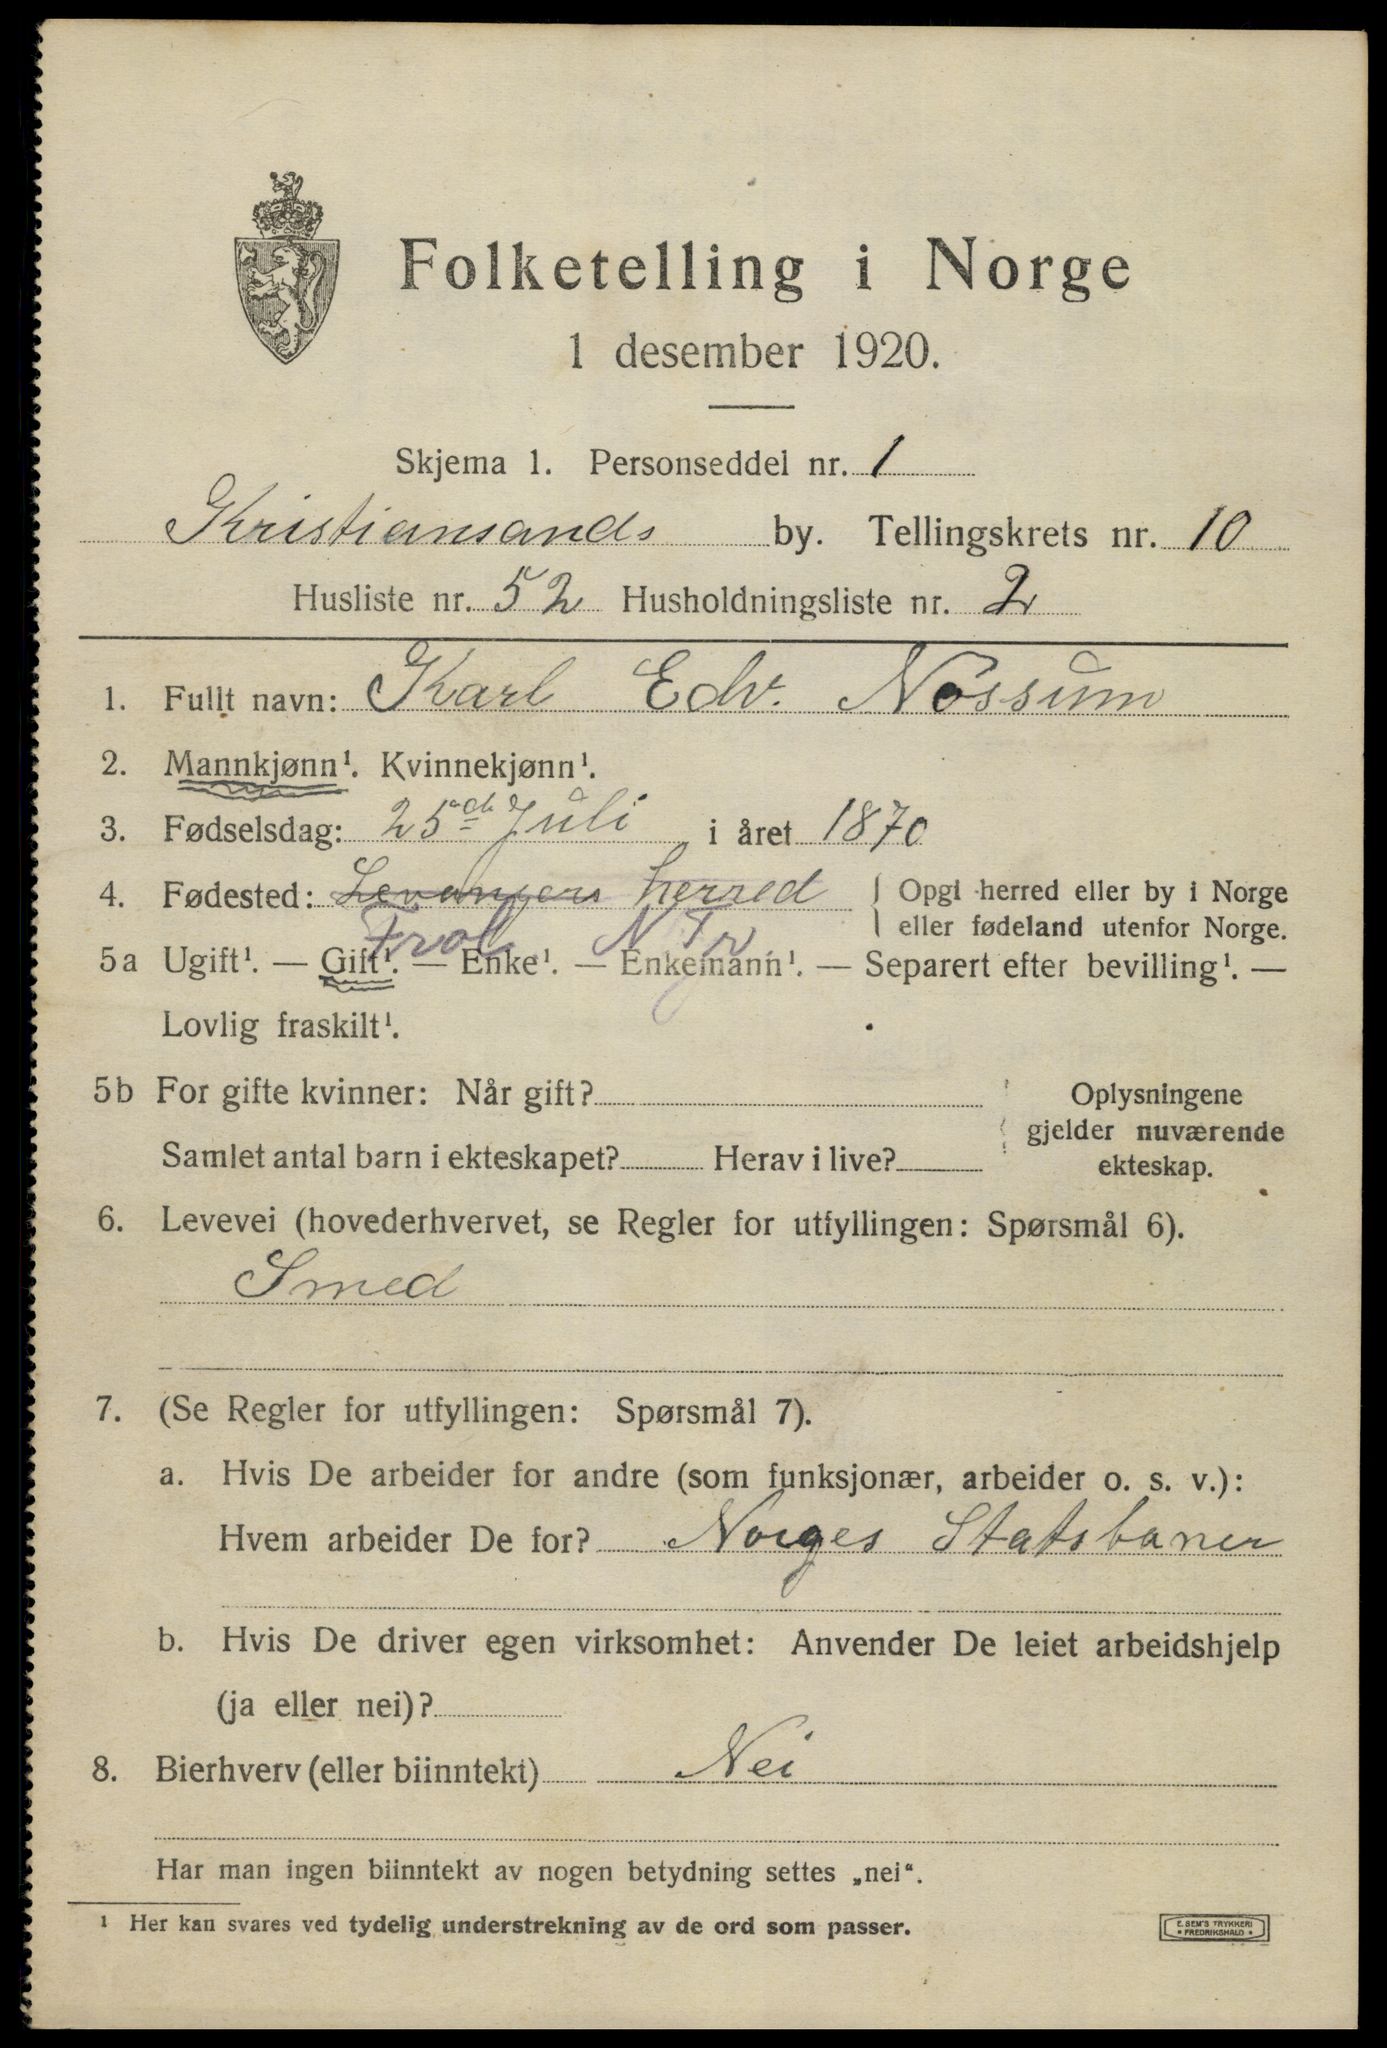 Folketelling i Norge
1 desember 1920.
Skjema 1. Personseddel nr. 1
Kristiansands by. Tellingskrets nr. 10
Husliste nr. 52 Husholdningsliste nr. 2
1. Fullt navn: Karl Edv. Nossum
2. Mannkjønn¹. Kvinnekjønn¹.
3. Fødselsdag: 25de Juli i året 1870
4. Fødested: Levangers herred { Opgi herred eller by i Norge
eller fødeland utenfor Norge.
Frol N Tr.
5a Ugift¹. — Gift¹. — Enke¹. — Enkemann¹. — Separert efter bevilling¹. —
Lovlig fraskilt¹.
5b For gifte kvinner: Når gift?
Samlet antal barn i ekteskapet? Herav i live?
Oplysningene
gjelder nuværende
ekteskap.
6. Levevei (hovederhvervet, se Regler for utfyllingen: Spørsmål 6).
Smed
7. (Se Regler for utfyllingen: Spørsmål 7).
a. Hvis De arbeider for andre (som funksjonær, arbeider o. s. v.):
Hvem arbeider De for? Norges Statsbaner
b. Hvis De driver egen virksomhet: Anvender De leiet arbeidshjelp
(ja eller nei)?
8. Bierhverv (eller biinntekt) Nei
Har man ingen biinntekt av nogen betydning settes „nei“.
¹ Her kan svares ved tydelig understrekning av de ord som passer.
E. SEM'S TRYKKERI
* FREDRIKSHALD *